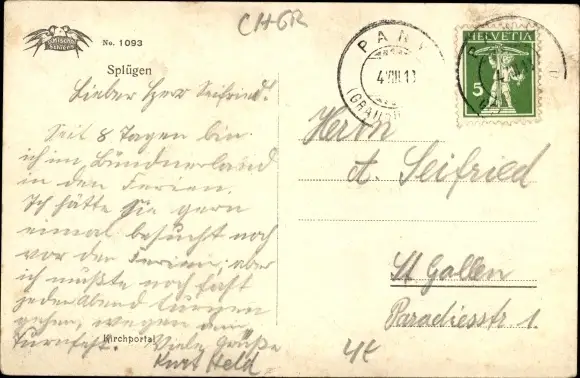 CHGR
No. 1093
Splügen
Lieber Herr Seifried!
Seit 8 Tagen bin
ich im Bündnerland
in den Ferien.
Ich hätte Sie gern
einmal besucht noch
vor den Ferien aber
ich mußte noch fast
jeden Abend turnen
gehen, wegen dem
Turnfest. Viele Grüße
Kurt Held
Kirchportal
4 VIII 1
HELVETIA
5
Herrn
A. Seifried
St Gallen
Paradiesstr 1.
4€